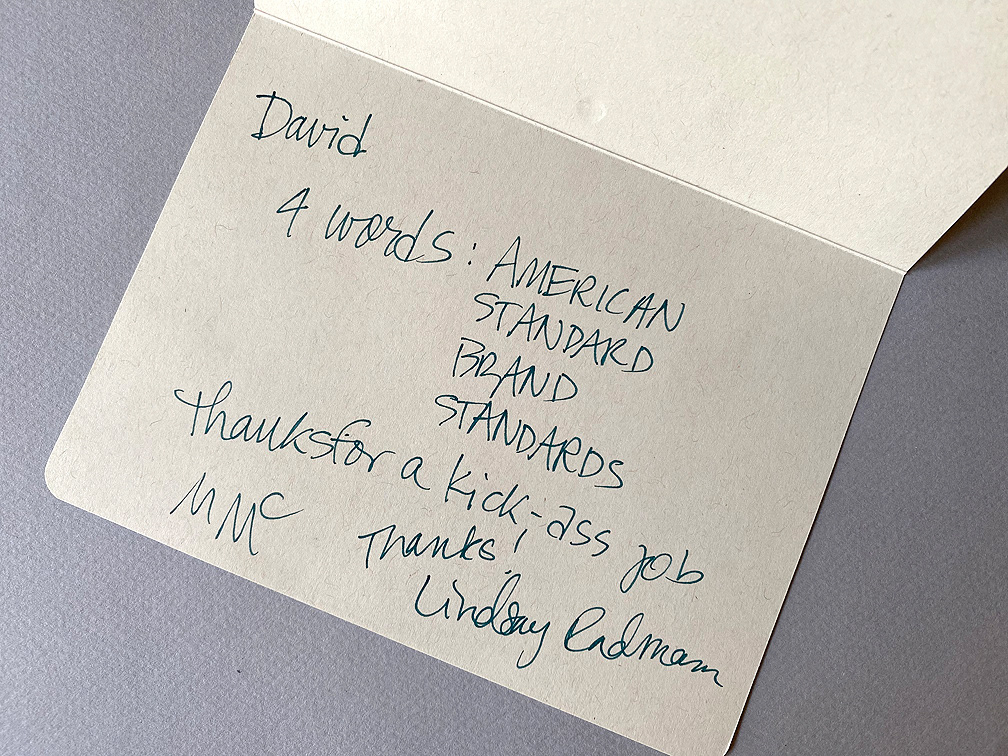 David
4 words: AMERICAN
STANDARD
BRAND
STANDARDS
Thanks for a kick-ass job
MMC
Thanks!
Lindsay Radmann